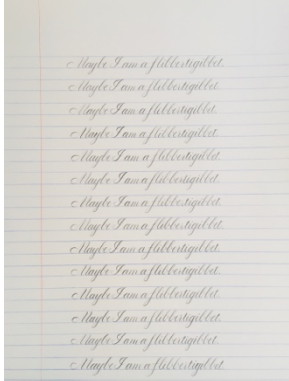 Maybe I am a flibbertigibbet.
Maybe I am a flibbertigibbet.
Maybe I am a flibbertigibbet.
Maybe I am a flibbertigibbet.
Maybe I am a flibbertigibbet.
Maybe I am a flibbertigibbet.
Maybe I am a flibbertigibbet.
Maybe I am a flibbertigibbet.
Maybe I am a flibbertigibbet.
Maybe I am a flibbertigibbet.
Maybe I am a flibbertigibbet.
Maybe I am a flibbertigibbet.
Maybe I am a flibbertigibbet.
Maybe I am a flibbertigibbet.